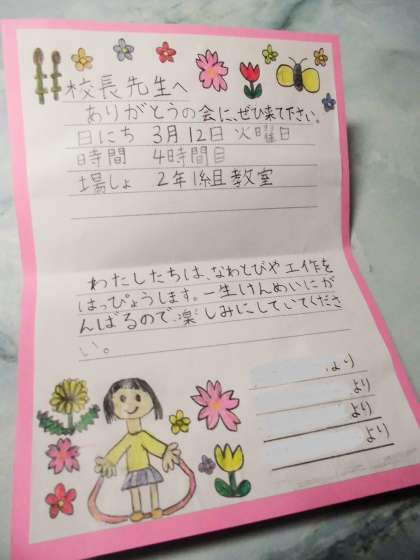 校長先生へ
ありがとうの会に、ぜひ来て下さい。
日にち 3月12日 火曜日
時間 4時間目
場しょ 2年1組教室
わたしたちは、なわとびや工作を
はっぴょうします。一生けんめいにが
んばるので、楽しみにしていてくださ
い。
より
より
より
より